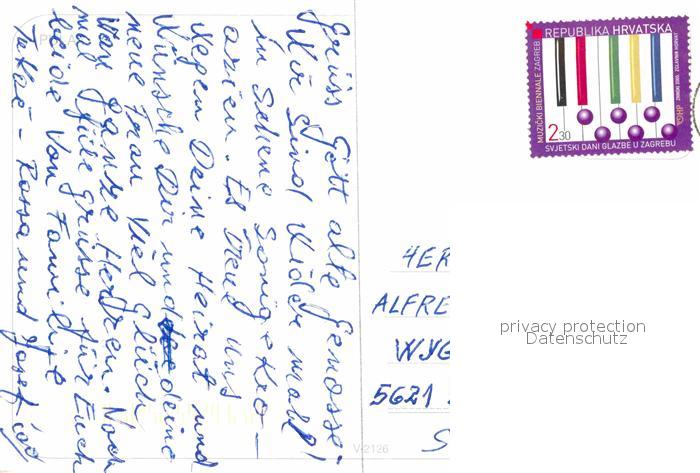 Grüss Gott alte Genosse.
Wir Sind Wider mahl
in Schene Sonige Kro-
azien. Es Freut uns
wegen Deine Heirat und
Wünsche Dir und deine
neue Frau Viel Glück
Von ganze Herzen. Noch
mal Viele Grüsse für Euch
beide Von Familie
- Rossa und Josef
HER
ALFRE
WYG
5621
S
V-2126
REPUBLIKA HRVATSKA
MUZIČKI BIENNALE ZAGREB
2.30
SVJETSKI DANI GLAZBE U ZAGREBU
privacy protection
Datenschutz